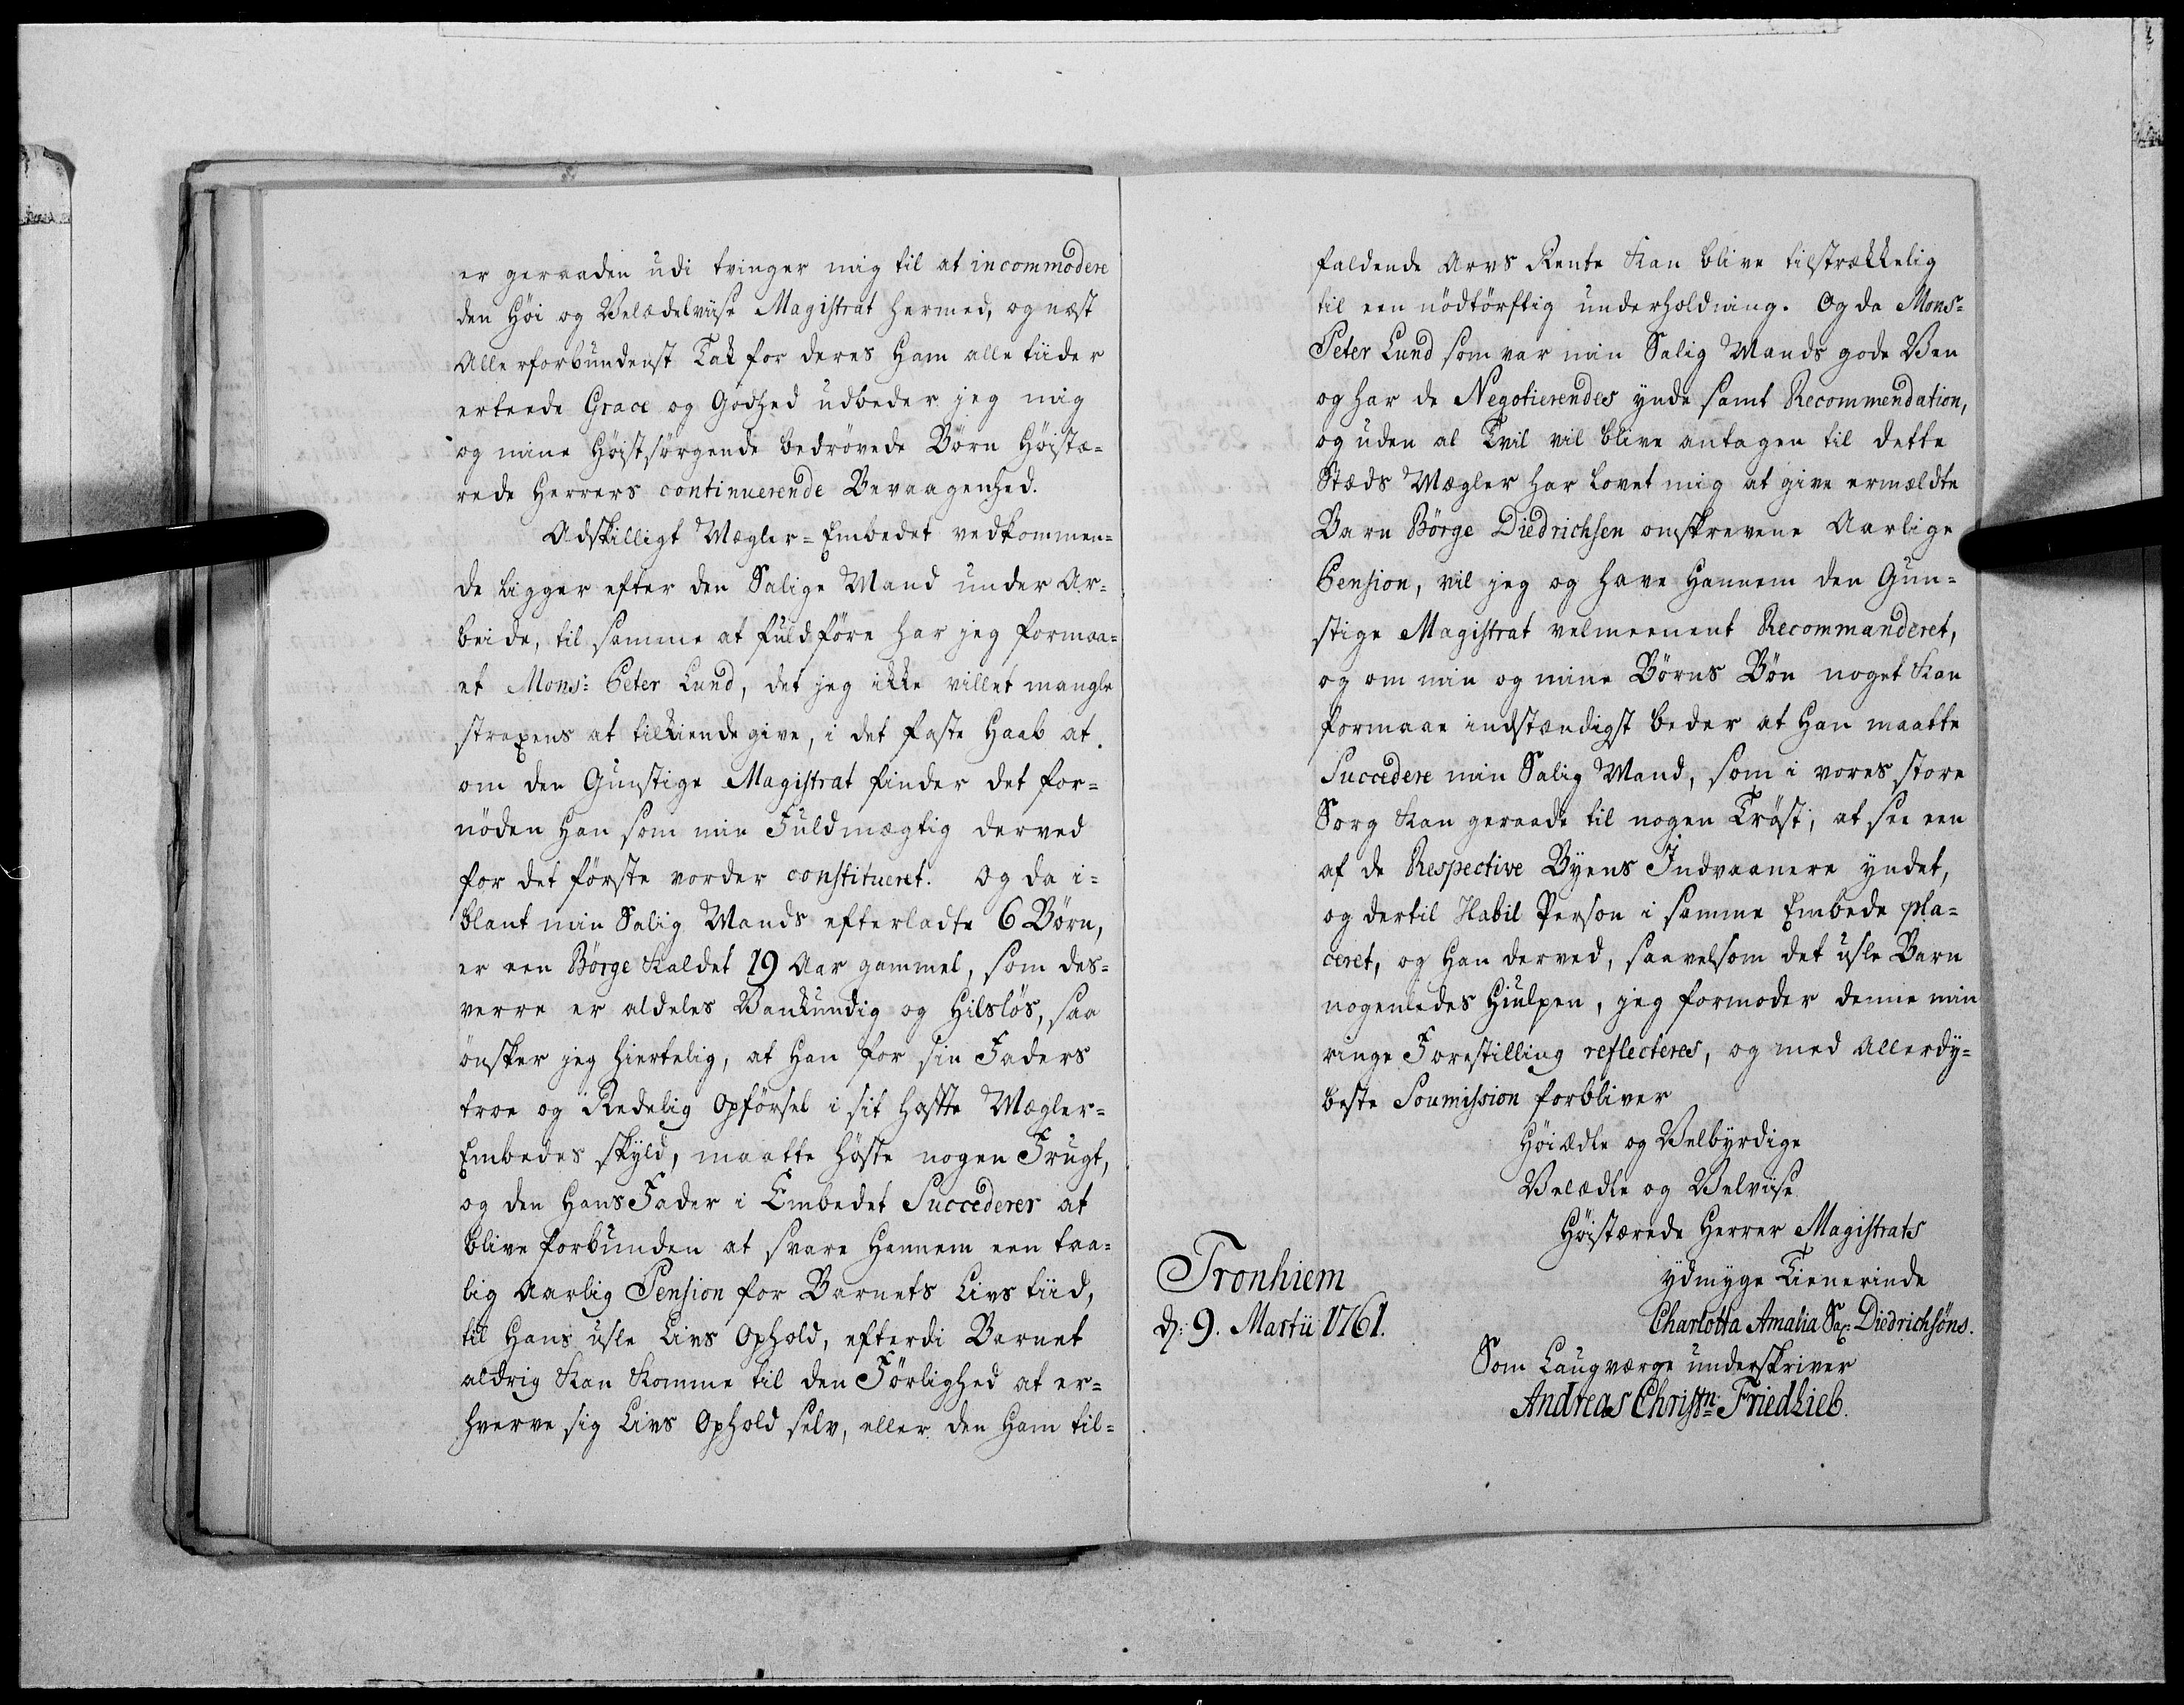 er geraaden udi tvinger mig til at incommodere
den Höi og Velædelviise Magistrat hermed, og næst
Allerforbundenst Tak for deres Ham alle tiider
erteede Grace og Godhed udbeder jeg mig
og mine Höistsörgende bedrövede Börn Höistæ-
rede Herrers continuerende Bevaagenhed.
Adskilligt Mægler-Embedet vedkommen-
de ligger efter den Salige Mand under Ar-
beide, til samme at fuldföre har jeg formaa-
et Monsr: Peter Lund, det jeg ikke villet mangle
straxens at tilkiendegive, i det faste Haab at
om den Gunstige Magistrat finder det for-
nöden Han som min Fuldmægtig derved
for det förste vorder constitueret. Og da i-
blant min Salig Mands efterladte 6 Börn,
er een Börge Kaldet 19 Aar gammel, som des-
verre er aldeles Vankundig og Hilslös, saa
önsker jeg hiertelig, at Han for sin Faders
troe og Redelig Opförsel i sit hafte Mægler-
Embedes skyld, maatte höste nogen Frugt,
og den Hans Fader i Embedet Succederer at
blive forbunden at svare Hannem een taa-
lig Aarlig Pension for Barnets Livs tiid,
til Hans usle Livs Ophold, efterdi Barnet
aldrig Kan Komme til den Förlighed at er-
hverve sig Livs Ophold selv, eller den Ham til-
faldende Arvs Rente Kan blive tilstrækkelig
til een nödtörftig underholdning. Og da Monsr
Peter Lund som var min Salig Mands gode Ven
og har de Negotierendes ynde samt Recommendation,
og uden al Tvil vil blive antagen til dette
Stæds Mægler har lovet mig at give ermældte
Barn Börge Diedrichsen omskrevene Aarlige
Pension, vil jeg og have Hannem den Gun-
stige Magistrat velmeenent Recommanderet,
og om min og mine Börns Bön noget Kan
formaae indstændigst beder at Han maatte
Succedere min Salig Mand, som i vores store
Sorg Kan geraade til nogen Tröst, at see een
af de Respective Byens Indvaanere yndet,
og dertil Habil Person i samme Embede pla-
ceret, og Han derved, saavelsom det usle Barn
nogenledes Hiulpen, jeg formoder denne min
ringe Forestilling reflecteres, og med Allerdy-
beste Soumission forbliver
Höiædle og Velbyrdige
Velædle og Velviise
Höistærede Herrer Magistrats
ydmyge Tienerinde
Tronhiem
d: 9. Martii 1761.
Charlotta Amalia Sa: Diedrichsöns.
Som Laugværge underskriver
Andreas Christn: Friedlieb.